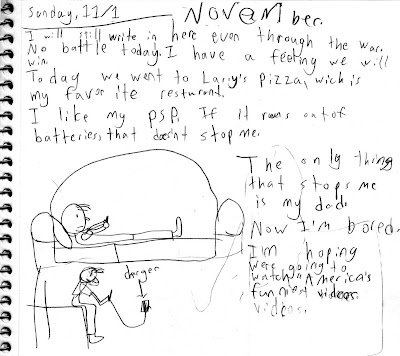 Sunday, 11/1
NOV@Mber.
I will still write in here even through the war.
No battle today. I have a feeling we will
win.
Today we went to Larry's pizza, wich is
my favor ite resturant.
I like my PSP. If it runs out of
batteries, that doesnt stop me.
The only thing
that stops me
is my dad.
Now I'm bored.
I'm hoping
were going to
watch "America's
funniest videos.
videos.
charger